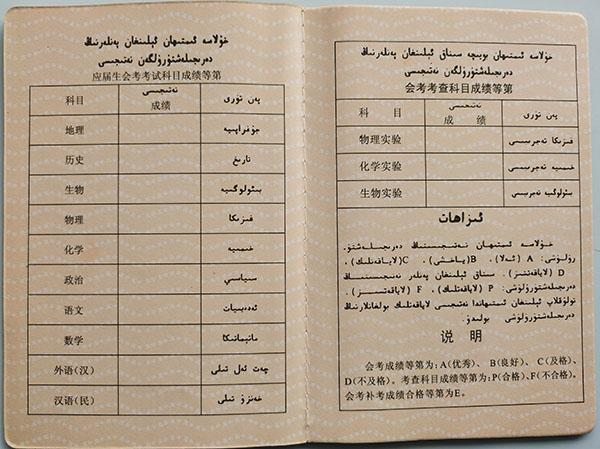 خۇلاسە ئىمتىھان ئېلىنغان پەنلەرنىڭ
دەرىجىلەشتۈرۈلگەن نەتىجىسى
应届生会考考试科目成绩等第
科目 نەتىجىسى 成绩 پەن تۈرى
地理 جۇغراپىيە
历史 تارىخ
生物 بىئولوگىيە
物理 فىزىكا
化学 خىمىيە
政治 سىياسىي
语文 ئەدەبىيات
数学 ماتېماتىكا
外语(汉) چەت ئەل تىلى
汉语(民) خەنزۇ تىلى
خۇلاسە ئىمتىھان بويىچە سىناق ئېلىنغان پەنلەرنىڭ
دەرىجىلەشتۈرۈلگەن نەتىجىسى
会考考查科目成绩等第
科 目 نەتىجىسى 成 绩 پەن تۈرى
物理实验 فىزىكا تەجرىبىسى
化学实验 خىمىيە تەجرىبىسى
生物实验 بىئولوگىيە تەجرىبىسى
ئىزاھات
خۇلاسە ئىمتىھان نەتىجىسىنىڭ دەرىجىلەشتۈ-
رۈلۈشى: A (ئەلا)، B(ياخشى)، C(لاياقەتلىك)،
D (لاياقەتسىز). سىناق ئېلىنغان پەنلەر نەتىجىسىنىڭ
دەرىجىلەشتۈرۈلۈشى: P (لاياقەتلىك)، F (لاياقەتسىز).
تولۇقلاپ ئېلىنغان ئىمتىھاندا نەتىجىسى لاياقەتلىك بولغانلارنىڭ
دەرىجىلەشتۈرۈلۈشى بولىدۇ.
说 明
会考成绩等第为:A(优秀)、B(良好)、C(及格)、
D(不及格)。考查科目成绩等第为:P(合格)、F(不合格)。
会考补考成绩合格等第为E。